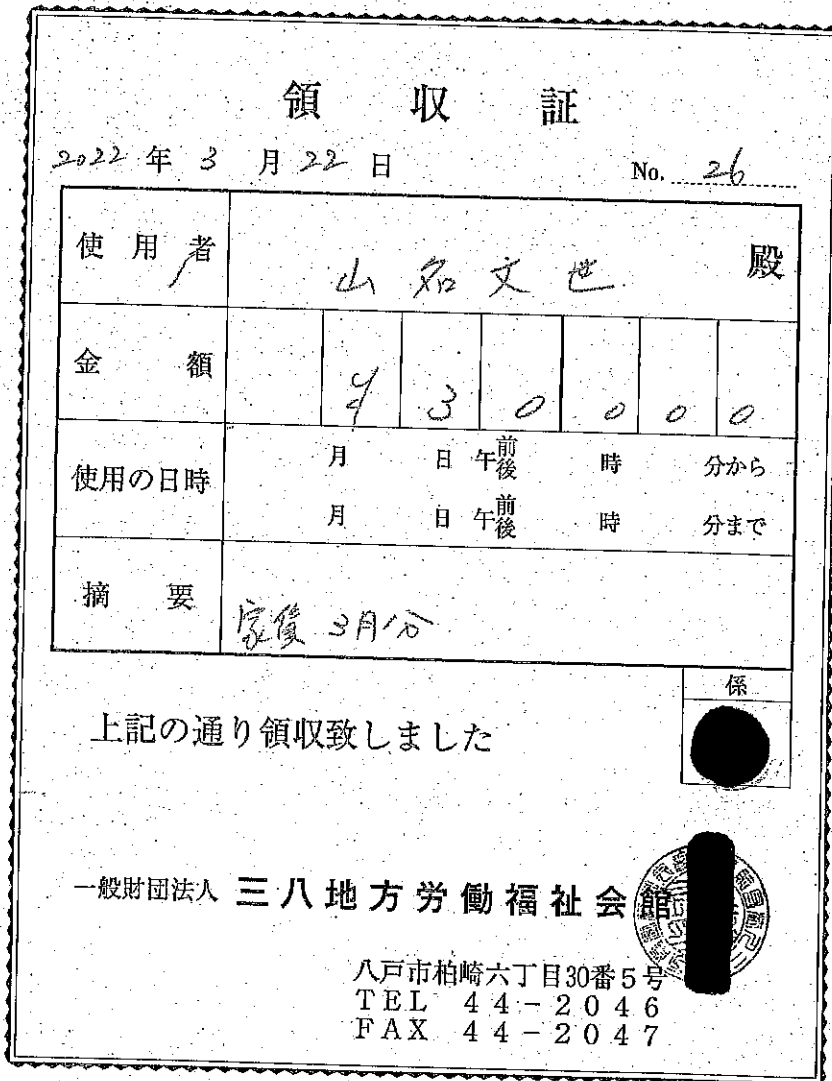 領収証
2022年3月22日 No. 26
使用者 山名文世 殿
金額 ¥30000
使用の日時 月 日 午前後 時 分から
月 日 午前後 時 分まで
摘要 家賃 3月分
係
上記の通り領収致しました
一般財団法人 三八地方労働福祉会館
八戸市柏崎六丁目30番5号
TEL 44-2046
FAX 44-2047